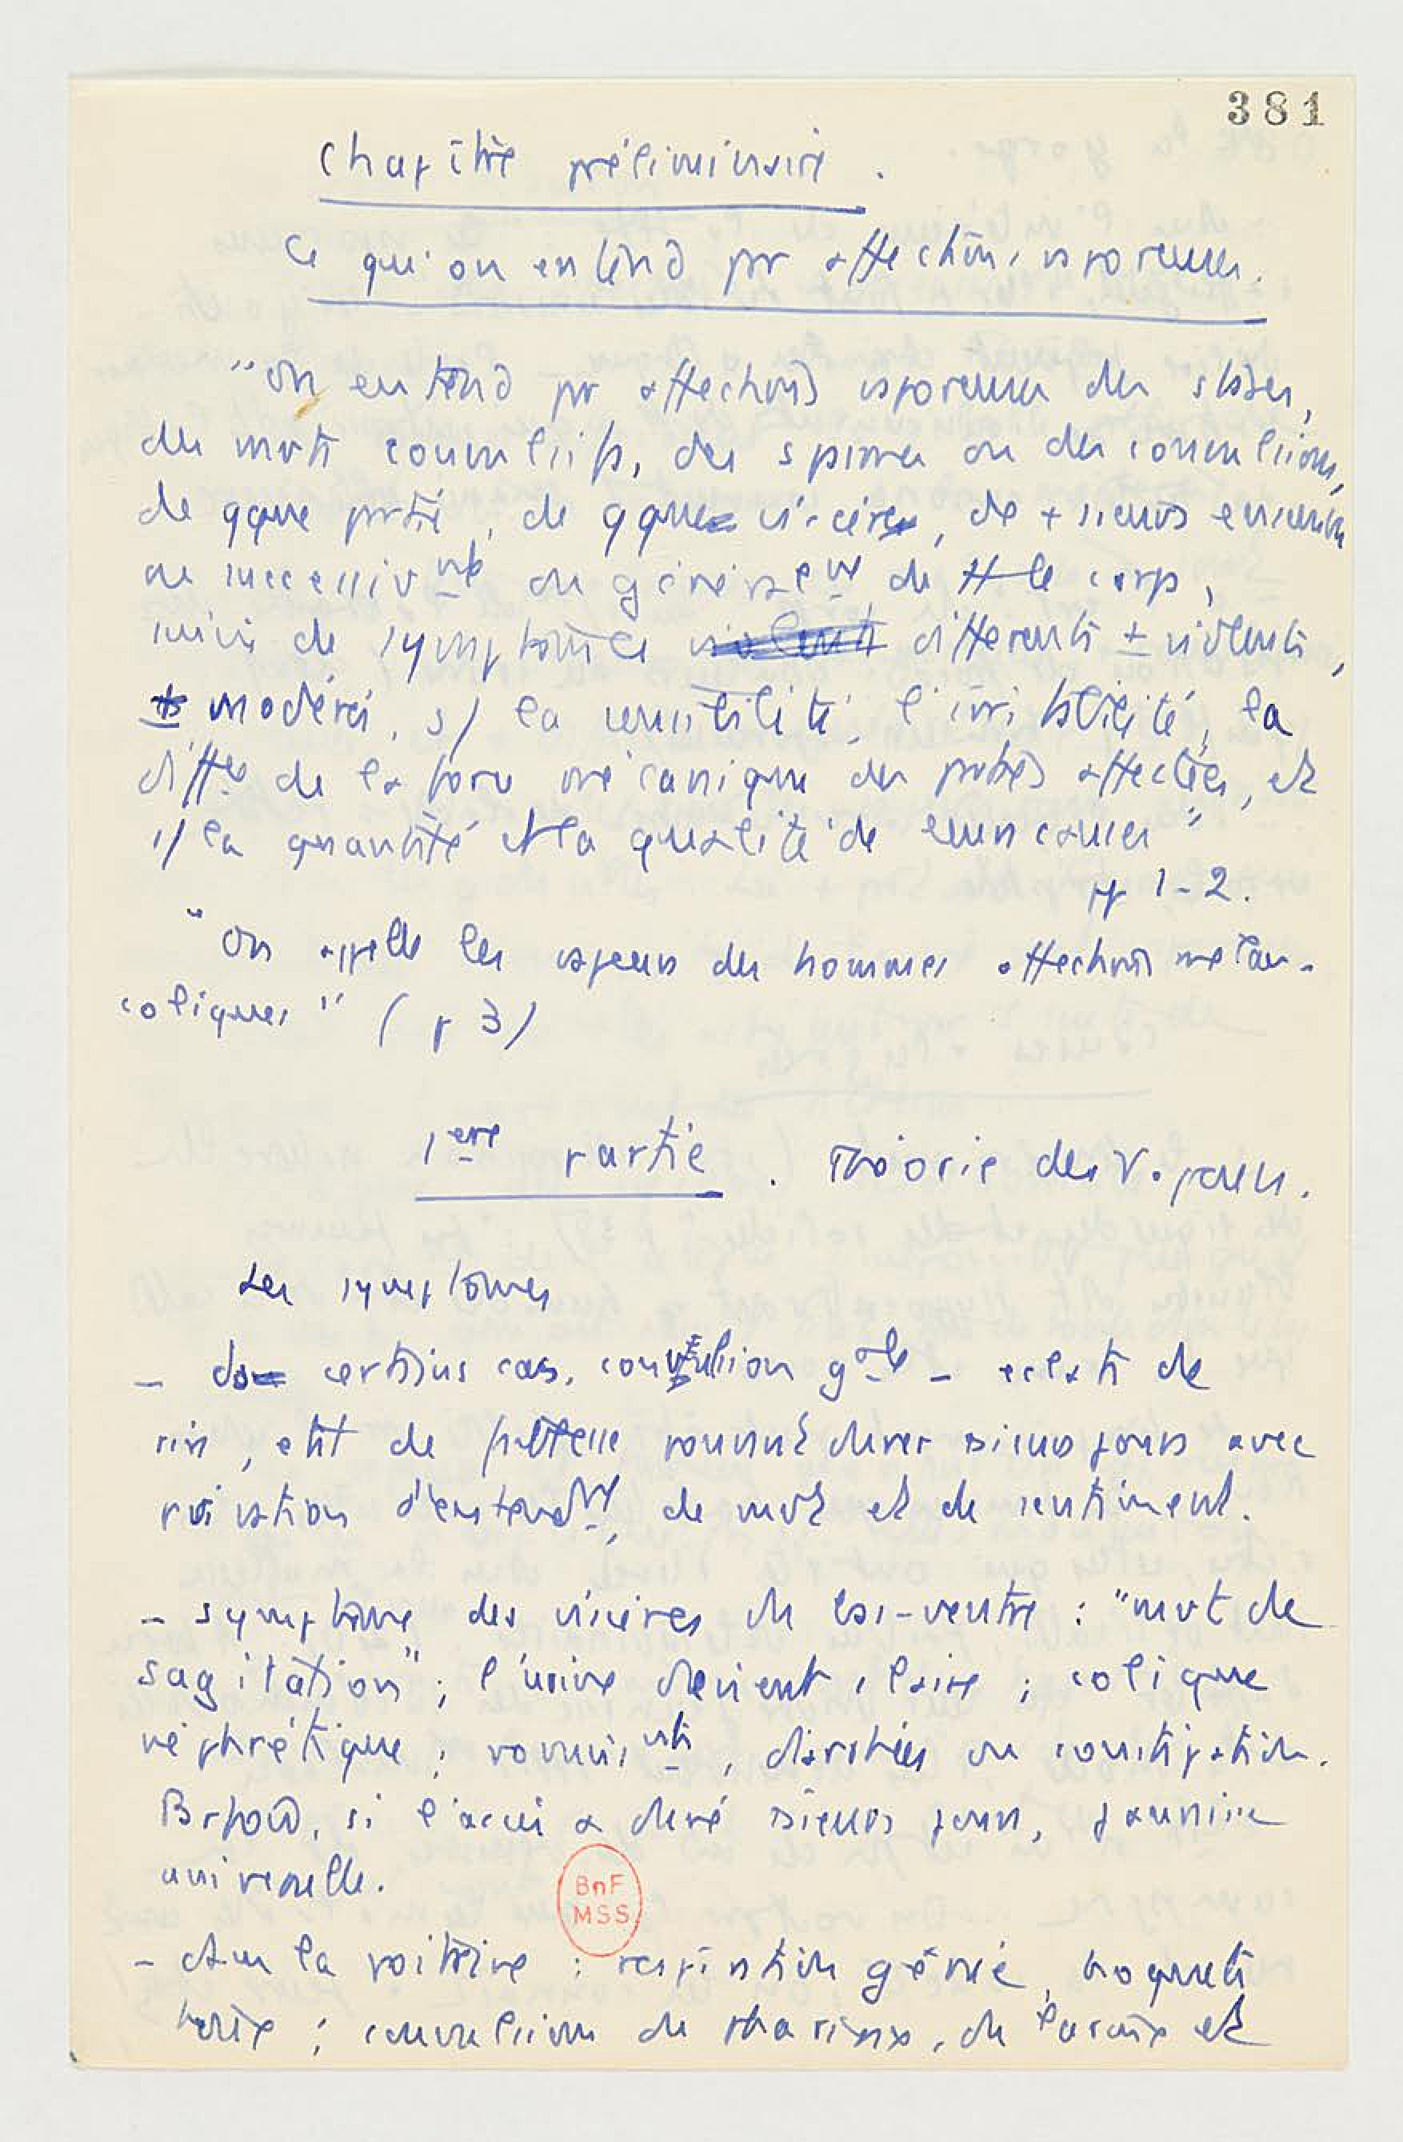 381
Chapitre préliminaire.
Ce qu'on entend pr affections vaporeuses.
"On entend pr affections vaporeuses des
des mvts convulsifs, des spasmes ou des convulsions,
de qque partie, de qques viscères, de +sieurs ensemble
ou successivmt ou généralemt de tt le corps,
suivis de symptômes violents différents ± violents,
± modérés, s/ la sensibilité, l'irritabilité, la
différce de la force mécanique des parties affectées, et
s/ la quantité et la qualité de leurs causes"
pp 1-2.
"On appelle les vapeurs des hommes affections mélan-
coliques" (p 3)
1ère partie. Théorie des Vapeurs.
Les symptômes
- ds certains cas, convulsion gale - éclats de
ris, état de faiblesse pouvant durer +sieurs jours avec
privation d'entendmt, de mvt et de sentiment.
- symptôme des viscères du bas-ventre : "mvt de
agitation" ; l'urine devient claire ; colique
néphrétique ; vomissmts, diarrhées ou constipation.
Parfois, si l'accès a duré +sieurs jours, jaunisse
universelle.
BnF
MSS
- dans la poitrine : respiration gênée, hoquets
toux ; convulsions du pharynx, du larynx et